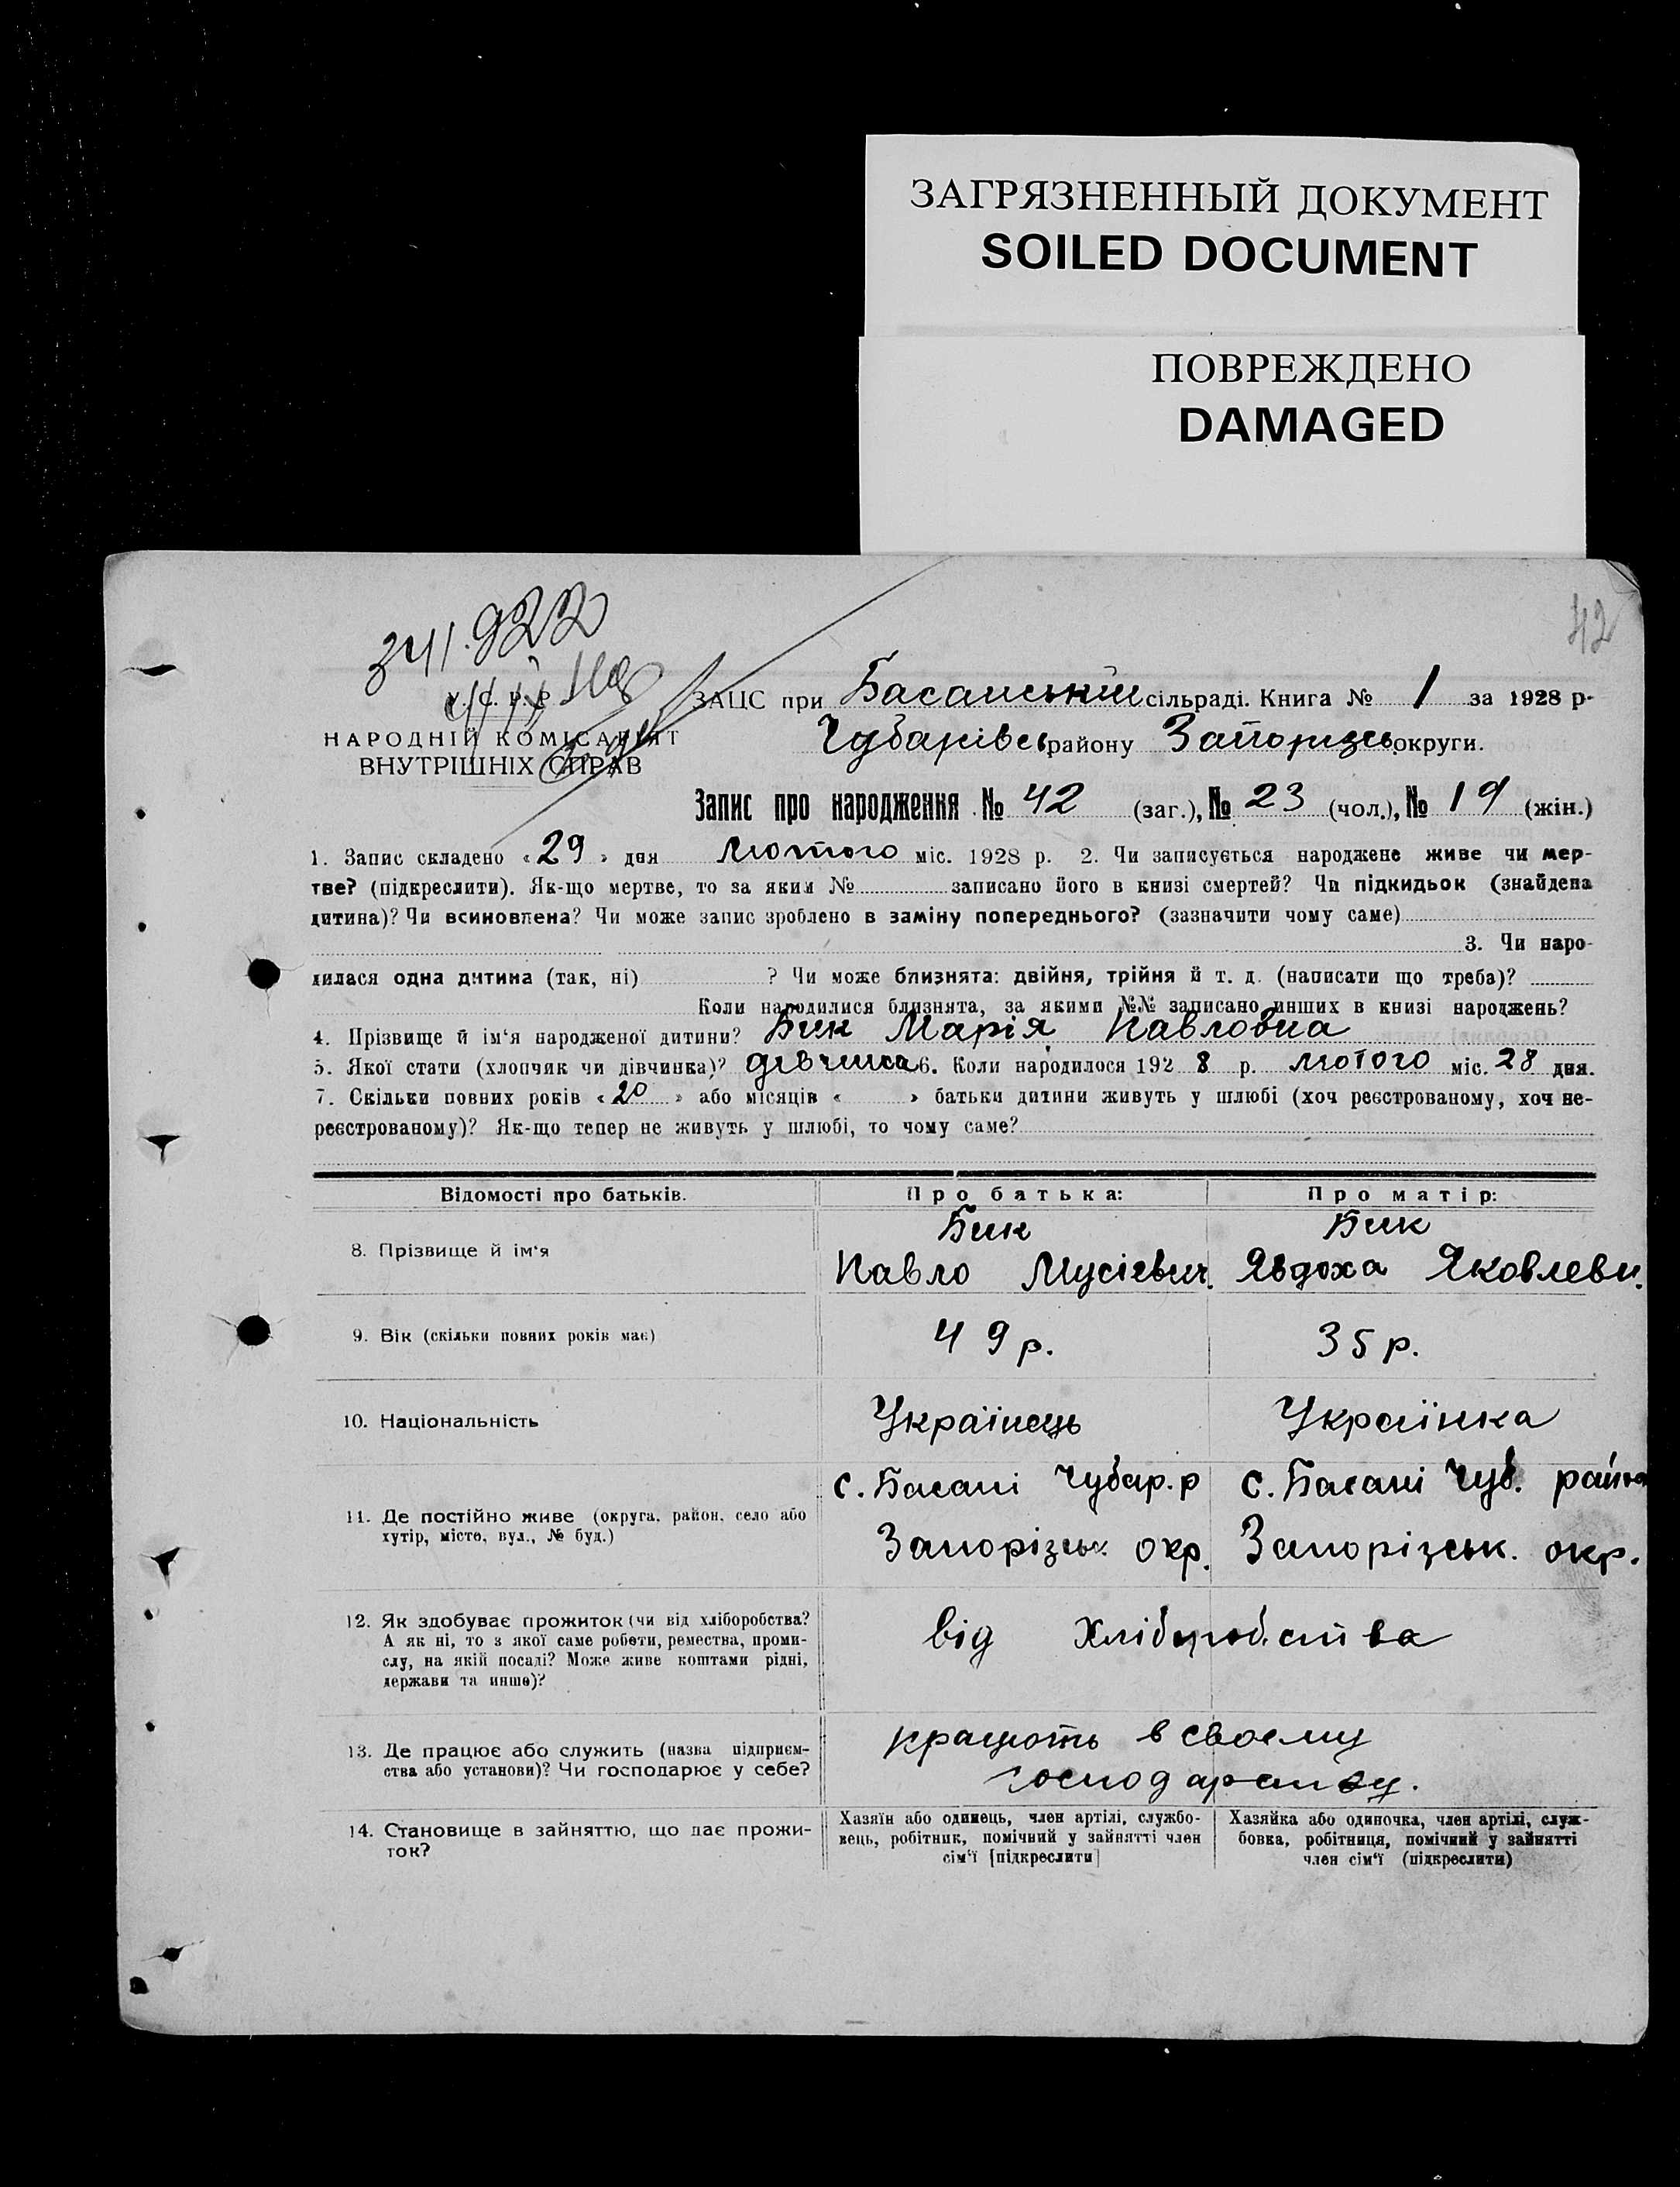 ЗАГРЯЗНЕННЫЙ ДОКУМЕНТ
SOILED DOCUMENT
ПОВРЕЖДЕНО
DAMAGED
42
У. С. Р. Р.
НАРОДНІЙ КОМІСАРІЯТ
ВНУТРІШНІХ СПРАВ
ЗАЦС при Басанській сільраді. Книга № 1 за 1928 р.
Чубарівськ району Запорізськ округи.
Запис про народження № 42 (заг.), № 23 (чол.), № 19 (жін.)
1. Запис складено «29» дня лютого міс. 1928 р. 2. Чи записується народжене живе чи мер-
тве? (підкреслити). Як-що мертве, то за яким № записано його в книзі смертей? Чи підкидьок (знайдена
дитина)? Чи всиновлена? Чи може запис зроблено в заміну попереднього? (зазначити чому саме)
3. Чи наро-
дилася одна дитина (так, ні) ? Чи може близнята: двійня, трійня й т. д. (написати що треба)?
Коли народилися близнята, за якими №№ записано инших в книзі народжень?
4. Прізвище й ім'я народженої дитини? Бик Марія Павловна
5. Якої стати (хлопчик чи дівчинка)? дівчина 6. Коли народилося 1928 р. лютого міс. 28 дня.
7. Скільки повних років «20» або місяців « » батьки дитини живуть у шлюбі (хоч реєстрованому, хоч не-
реєстрованому)? Як-що тепер не живуть у шлюбі, то чому саме?
Відомості про батьків. Про батька: Про матір:
8. Прізвище й ім'я
Бик
Павло Мусієвич.
Бик
Явдоха Яковлевн.
9. Вік (скільки повних років має) 49 р. 35 р.
10. Національність Українець Українка
11. Де постійно живе (округа, район, село або
хутір, місто, вул., № буд.)
с. Басані Чубар. р
Запорізськ окр.
с. Басані Чуб. район
Запорізськ. окр.
12. Як здобуває прожиток (чи від хліборобства?
А як ні, то з якої саме роботи, ремества, проми-
слу, на якій посаді? Може живе коштами рідні,
держави та инше)?
від Хліборобства
13. Де працює або служить (назва підприєм-
ства або установи)? Чи господарює у себе?
працють в своєму
господарству.
14. Становище в зайняттю, що дає прожи-
ток?
Хазяїн або одинець, член артілі, службо-
вець, робітник, помічний у зайнятті член
сім'ї [підкреслити]
Хазяйка або одиночка, член артілі, служ-
бовка, робітниця, помічний у зайнятті
член сім'ї (підкреслити)